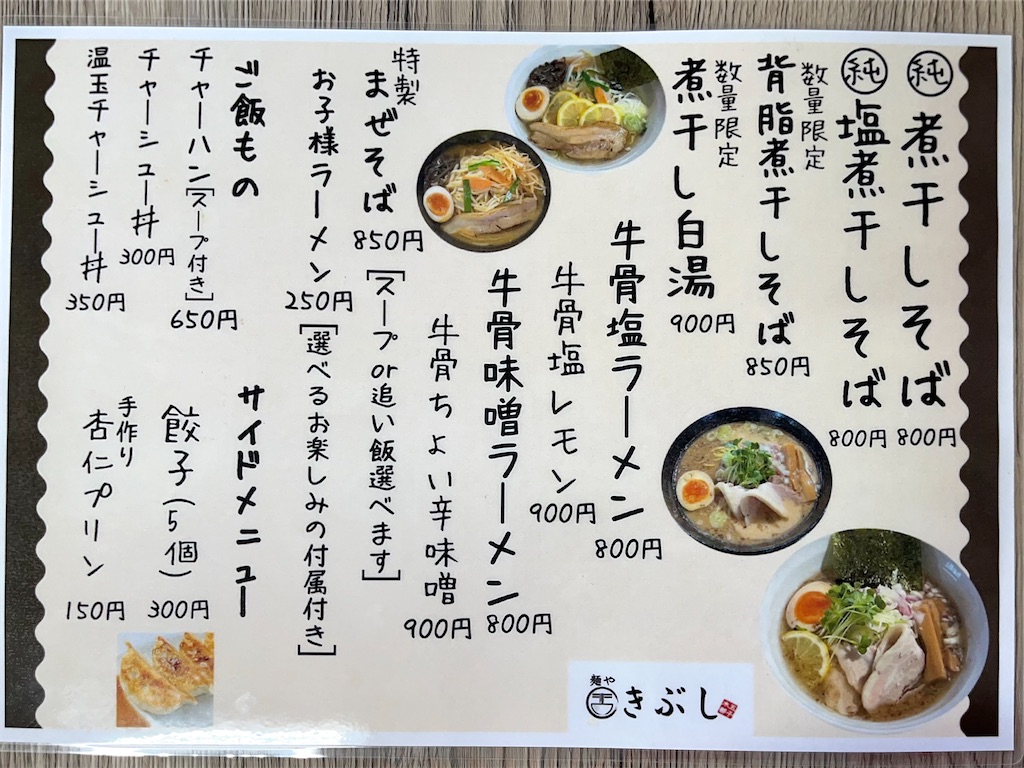 ㊞純 煮干しそば
800円
純 塩煮干しそば
800円
数量限定
背脂煮干しそば
850円
数量限定
煮干し白湯
900円
牛骨塩ラーメン
800円
牛骨塩レモン
900円
牛骨味噌ラーメン
800円
牛骨ちょい辛味噌
900円
特製
まぜそば
850円
[スープor追い飯選べます]
お子様ラーメン
250円
[選べるお楽しみの付属付き]
ご飯もの
チャーハン[スープ付き]
650円
チャーシュー丼
300円
温玉チャーシュー丼
350円
サイドメニュー
餃子(5個)
300円
手作り
杏仁プリン
150円
麺や
きぶし